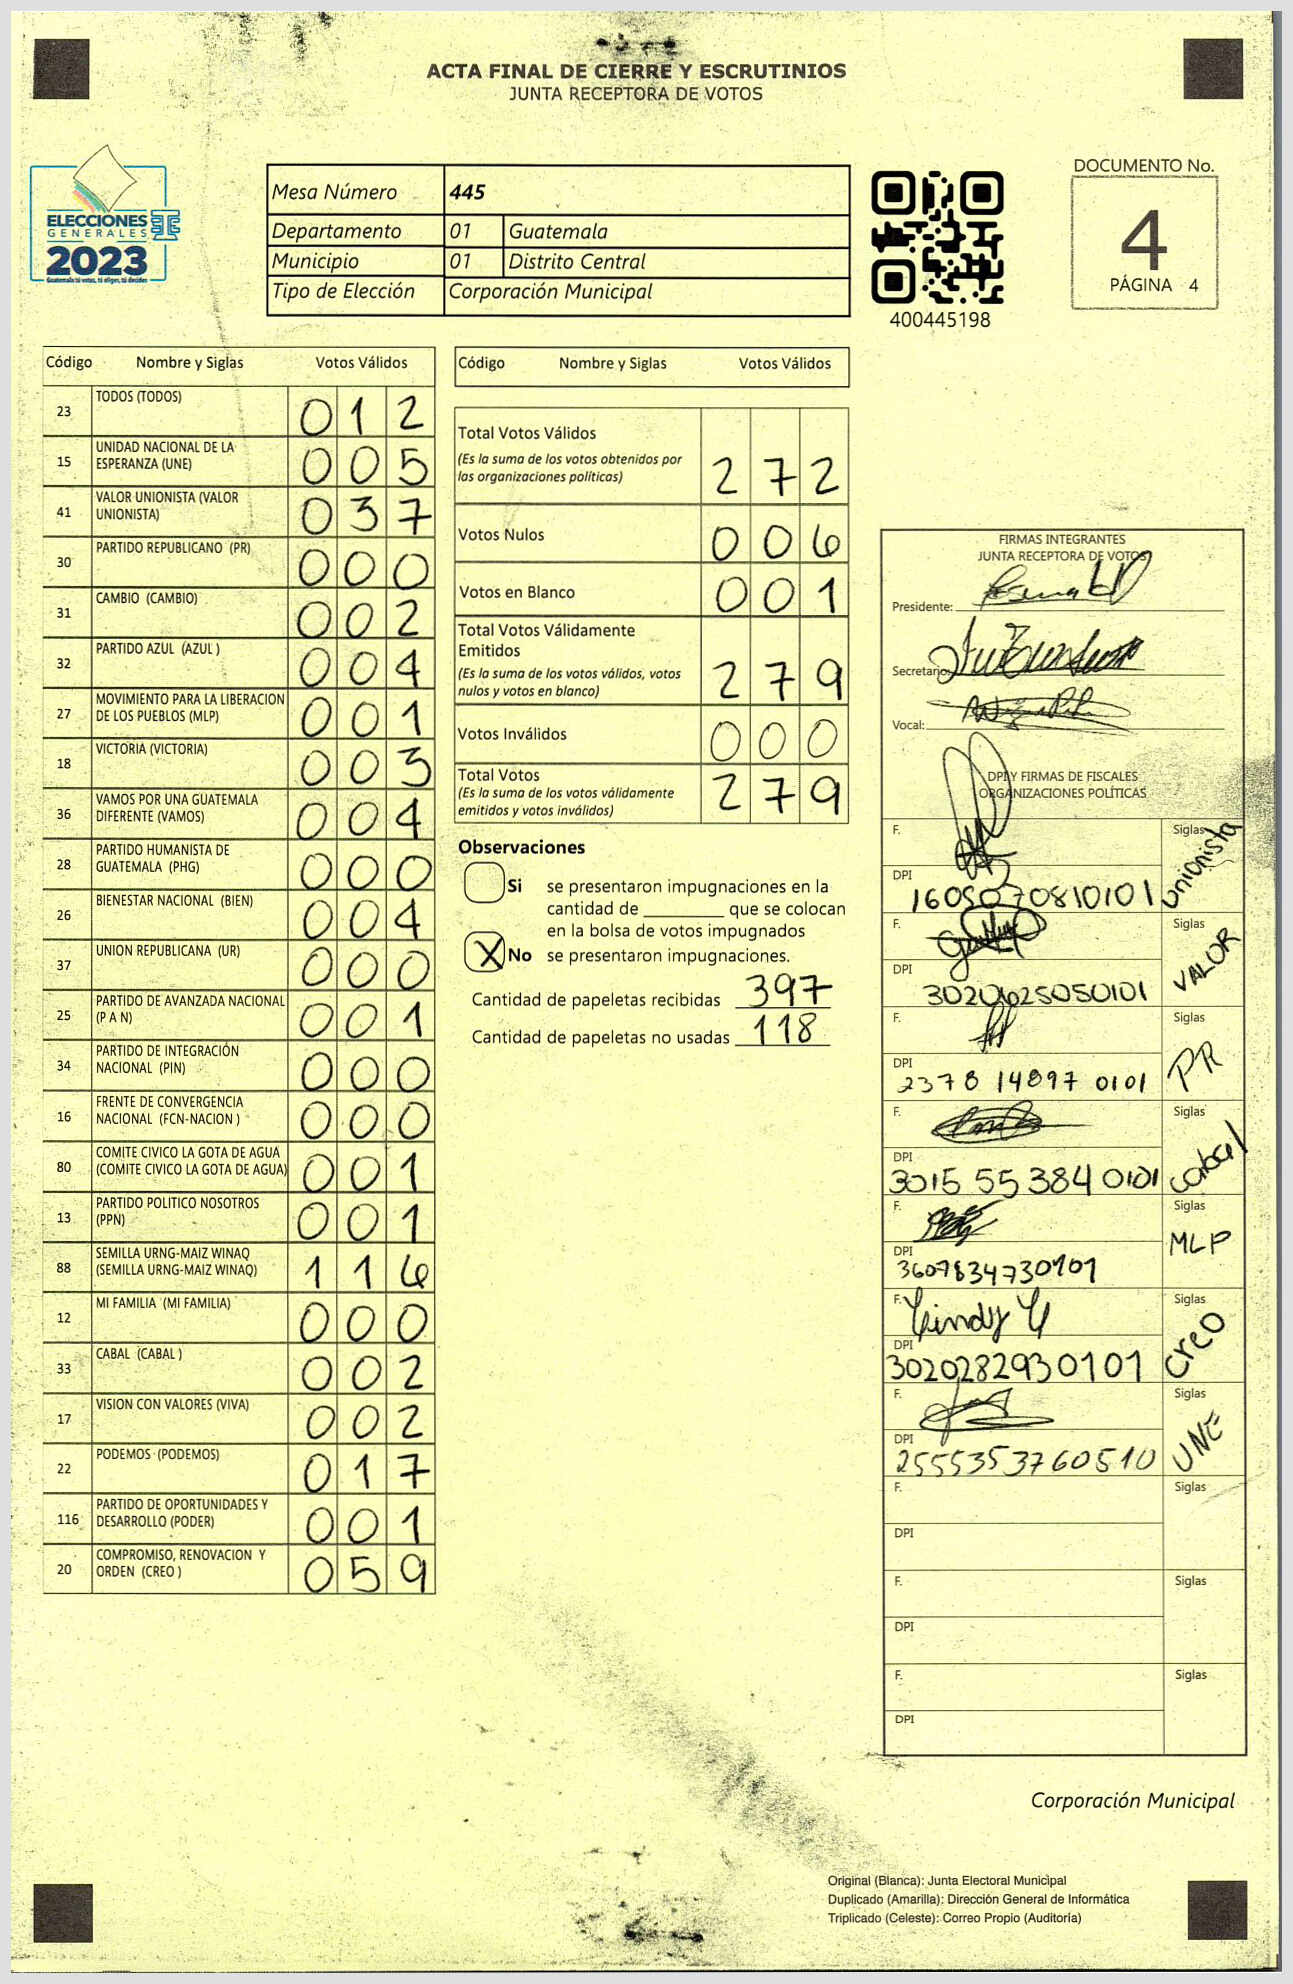 ACTA FINAL DE CIERRE Y ESCRUTINIOS
JUNTA RECEPTORA DE VOTOS
ELECCIONES
GENERALES
2023
Guatemala tú votas, tú eliges, tú decides
Mesa Número 445
Departamento 01 Guatemala
Municipio 01 Distrito Central
Tipo de Elección Corporación Municipal
400445198
DOCUMENTO No.
4
PÁGINA 4
Código Nombre y Siglas Votos Válidos
23 TODOS (TODOS) 0 1 2
15 UNIDAD NACIONAL DE LA ESPERANZA (UNE) 0 0 5
41 VALOR UNIONISTA (VALOR UNIONISTA) 0 3 7
30 PARTIDO REPUBLICANO (PR) 0 0 0
31 CAMBIO (CAMBIO) 0 0 2
32 PARTIDO AZUL (AZUL ) 0 0 4
27 MOVIMIENTO PARA LA LIBERACION DE LOS PUEBLOS (MLP) 0 0 1
18 VICTORIA (VICTORIA) 0 0 3
36 VAMOS POR UNA GUATEMALA DIFERENTE (VAMOS) 0 0 4
28 PARTIDO HUMANISTA DE GUATEMALA (PHG) 0 0 0
26 BIENESTAR NACIONAL (BIEN) 0 0 4
37 UNION REPUBLICANA (UR) 0 0 0
25 PARTIDO DE AVANZADA NACIONAL (P A N) 0 0 1
34 PARTIDO DE INTEGRACIÓN NACIONAL (PIN) 0 0 0
16 FRENTE DE CONVERGENCIA NACIONAL (FCN-NACION ) 0 0 0
80 COMITE CIVICO LA GOTA DE AGUA (COMITE CIVICO LA GOTA DE AGUA) 0 0 1
13 PARTIDO POLITICO NOSOTROS (PPN) 0 0 1
88 SEMILLA URNG-MAIZ WINAQ (SEMILLA URNG-MAIZ WINAQ) 1 1 6
12 MI FAMILIA (MI FAMILIA) 0 0 0
33 CABAL (CABAL ) 0 0 2
17 VISION CON VALORES (VIVA) 0 0 2
22 PODEMOS (PODEMOS) 0 1 7
116 PARTIDO DE OPORTUNIDADES Y DESARROLLO (PODER) 0 0 1
20 COMPROMISO, RENOVACION Y ORDEN (CREO ) 0 5 9
Código Nombre y Siglas Votos Válidos
Total Votos Válidos 2 7 2
(Es la suma de los votos obtenidos por
las organizaciones políticas)
Votos Nulos 0 0 6
Votos en Blanco 0 0 1
Total Votos Válidamente
Emitidos 2 7 9
(Es la suma de los votos válidos, votos
nulos y votos en blanco)
Votos Inválidos 0 0 0
Total Votos 2 7 9
(Es la suma de los votos válidamente
emitidos y votos inválidos)
Observaciones
Si se presentaron impugnaciones en la
cantidad de ________ que se colocan
en la bolsa de votos impugnados
X No se presentaron impugnaciones.
Cantidad de papeletas recibidas 397
Cantidad de papeletas no usadas 118
FIRMAS INTEGRANTES
JUNTA RECEPTORA DE VOTOS
Presidente:
Secretario:
Vocal:
DPI Y FIRMAS DE FISCALES
ORGANIZACIONES POLÍTICAS
F. Siglas
DPI 1605070810101 Unionista
F. Siglas
DPI 3020625050101 VALOR
F. Siglas
DPI 2378 14897 0101 PR
F. Siglas
DPI 3015 55 384 0101 cabal
F. Siglas
DPI 3607834730101 MLP
F. Cindy Siglas
DPI 3020282930101 Creo
F. Siglas
DPI 2555353760510 UNE
F. Siglas
DPI
F. Siglas
DPI
F. Siglas
DPI
Corporación Municipal
Original (Blanca): Junta Electoral Municipal
Duplicado (Amarilla): Dirección General de Informática
Triplicado (Celeste): Correo Propio (Auditoría)